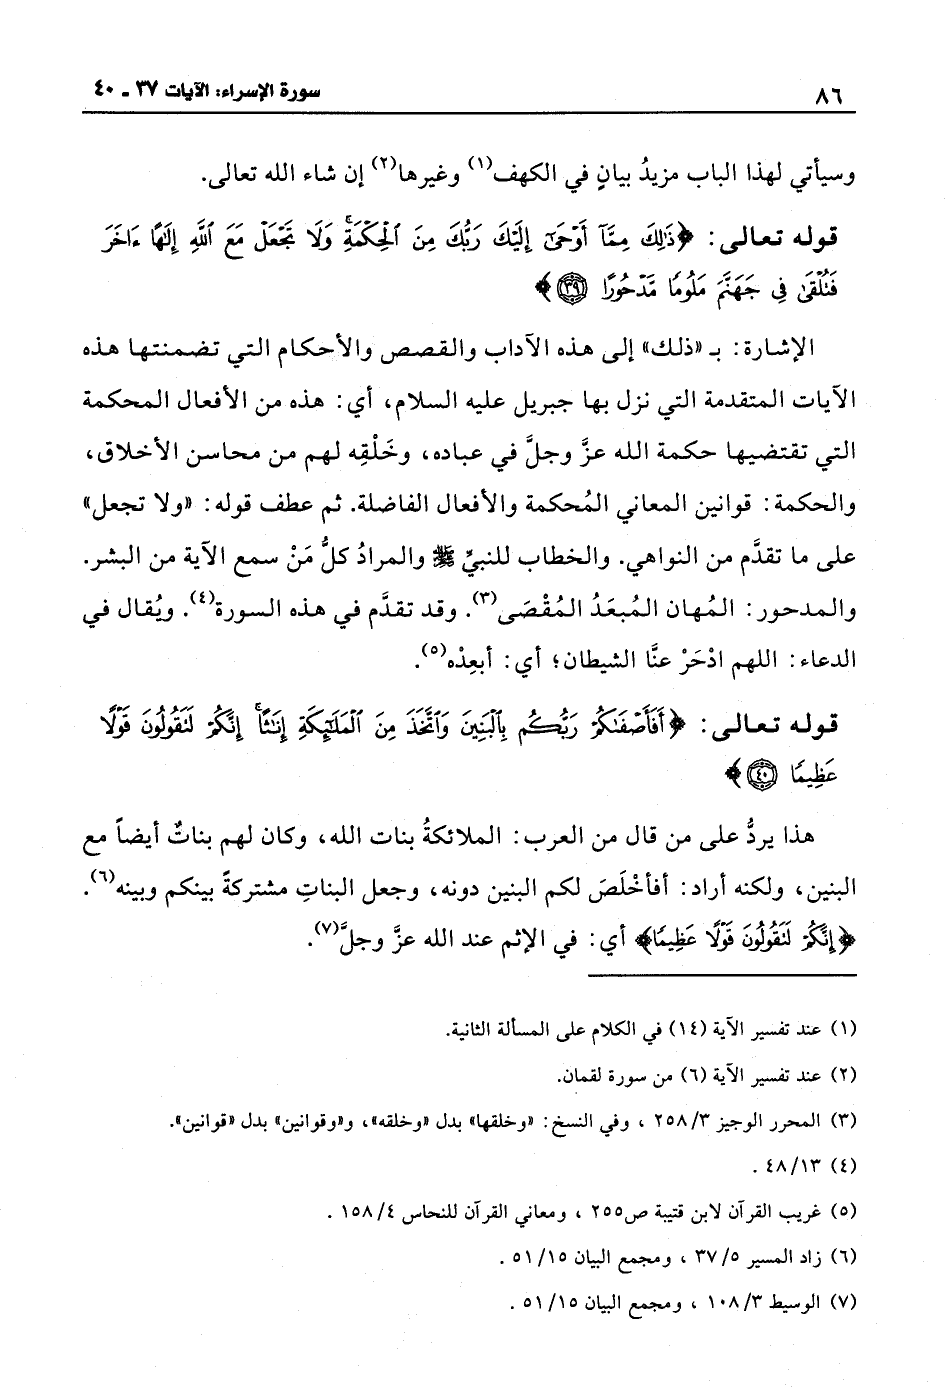 ٨٦
سورة الإسراء: الآيات ٣٧ - ٤٠
وسيأتي لهذا الباب مزيدُ بيانٍ في الكهف(١) وغيرها(٢) إن شاء الله تعالى.
قوله تعالى: ﴿ذَٰلِكَ مِمَّآ أَوْحَىٰٓ إِلَيْكَ رَبُّكَ مِنَ ٱلْحِكْمَةِ ۗ وَلَا تَجْعَلْ مَعَ ٱللَّهِ إِلَٰهًا ءَاخَرَ
فَتُلْقَىٰ فِى جَهَنَّمَ مَلُومًا مَّدْحُورًا ٣٩﴾
الإشارة: بـ «ذلك» إلى هذه الآداب والقصص والأحكام التي تضمنتها هذه
الآيات المتقدمة التي نزل بها جبريل عليه السلام، أي: هذه من الأفعال المحكمة
التي تقتضيها حكمة الله عزَّ وجلَّ في عباده، وخَلْقِه لهم من محاسن الأخلاق،
والحكمة: قوانين المعاني المُحكمة والأفعال الفاضلة. ثم عطف قوله: «ولا تجعل»
على ما تقدَّم من النواهي. والخطاب للنبيِّ ﷺ والمرادُ كلُّ مَنْ سمع الآية من البشر.
والمدحور: المُهان المُبعَدُ المُقْصَى(٣). وقد تقدَّم في هذه السورة(٤). ويُقال في
الدعاء: اللهم ادْحَرْ عنَّا الشيطان؛ أي: أبعِدْه(٥).
قوله تعالى: ﴿أَفَأَصْفَىٰكُمْ رَبُّكُم بِٱلْبَنِينَ وَٱتَّخَذَ مِنَ ٱلْمَلَٰٓئِكَةِ إِنَٰثًا ۚ إِنَّكُمْ لَتَقُولُونَ قَوْلًا
عَظِيمًا ٤٠﴾
هذا يردُّ على من قال من العرب: الملائكةُ بنات الله، وكان لهم بناتٌ أيضاً مع
البنين، ولكنه أراد: أفأخْلَصَ لكم البنين دونه، وجعل البناتِ مشتركةً بينكم وبينه(٦).
﴿إِنَّكُمْ لَتَقُولُونَ قَوْلًا عَظِيمًا﴾ أي: في الإثم عند الله عزَّ وجلَّ(٧).
(١) عند تفسير الآية (١٤) في الكلام على المسألة الثانية.
(٢) عند تفسير الآية (٦) من سورة لقمان.
(٣) المحرر الوجيز ٢٥٨/٣ ، وفي النسخ: «وخلقها» بدل «وخلقه»، و«وقوانين» بدل «قوانين».
(٤) ٤٨/١٣ .
(٥) غريب القرآن لابن قتيبة ص٢٥٥ ، ومعاني القرآن للنحاس ١٥٨/٤ .
(٦) زاد المسير ٣٧/٥ ، ومجمع البيان ٥١/١٥ .
(٧) الوسيط ١٠٨/٣ ، ومجمع البيان ٥١/١٥ .